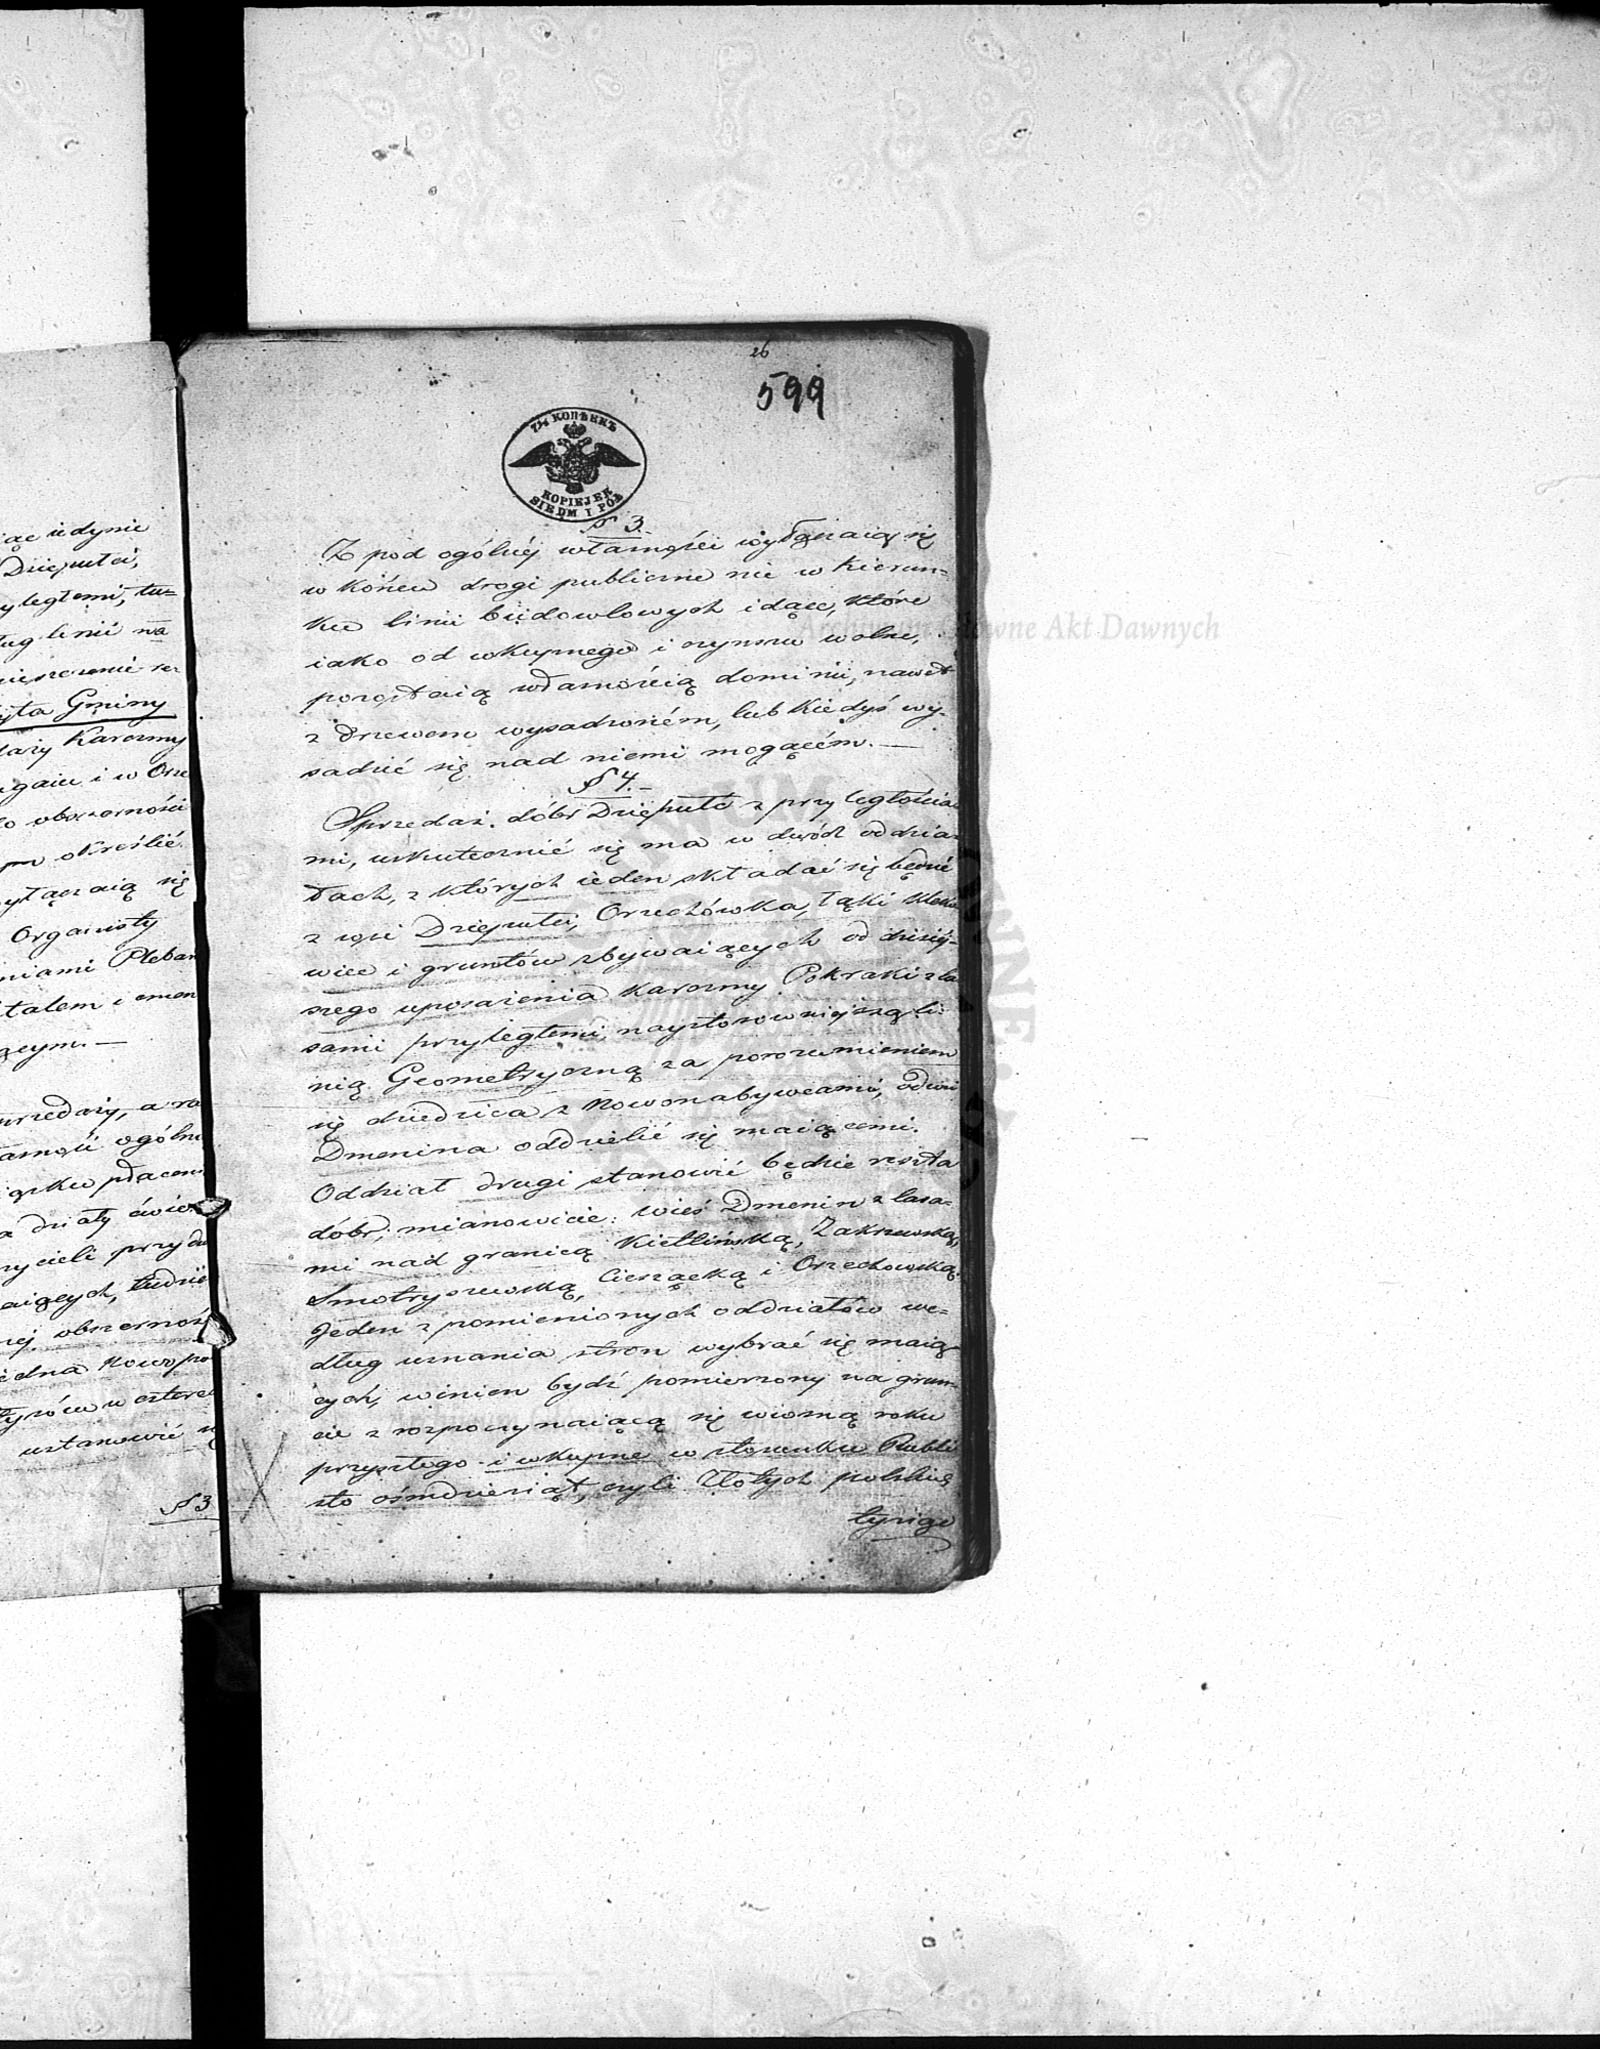 iąc iedynie
Dziepułci,
yległemi, tu=
ług linii na
ta Gminy
daży Karczmy
gaiu i w Orze
o obszerności
określić.
yłączaią się
Organisty
niami Pleban
talem i
ącym. —
przedaży, a
ogólne
działy
rzycieli przy
aiących, tudzież
obszerność
iedna
ustanowić
§ 3
26
599
7½ КОПѢЕКЪ
KOPIEJEK
SIEDM I PÓŁ
§ 3.
Z pod ogólnéj własności wyłączaią się
w końcu drogi publiczne nie w kierun=
ku linii budowlowych idące, które
iako od wkupnego i czynszu wolne,
pozostaią własnością dominii, nawet
z drzewem wysadzoném, lub kiedyś wy=
sadzić się nad niemi mogącém. —
§ 4. —
Sprzedaż dóbr Dziepułć z przyległościa=
mi, uskutecznić się ma w dwóch oddzia=
łach, z których ieden składać się będzie
z wsi Dziepułci, Orzechówka, łąki
wiec i gruntów zbywaiących od dzisiéy=
szego uposażenia Karczmy Pokraki z la
sami przyległemi, naystosowniejszą li=
nią Geometryczną za porozumieniem
się dziedzica z Nowonabywcami, od wsi
Dmenina oddzielić się maiącemi.
Oddział drugi stanowić będzie reszta
dóbr, mianowicie: wieś Dmenin z lasa=
mi nad granicą Kietlińską, Zakrzewską,
Smotryszewską, Cieszącką i Orzechowską.
Jeden z pomienionych oddziałów we=
dług uznania stron wybrać się maią=
cych, winien bydź pomierzony na grun=
cie z rozpoczynaiącą się wiosną roku
przyszłego i wkupne w stosunku Rubli
sto ośmdziesiąt, czyli Złotych polskich
tysiąc
Archiwum Główne Akt Dawnych